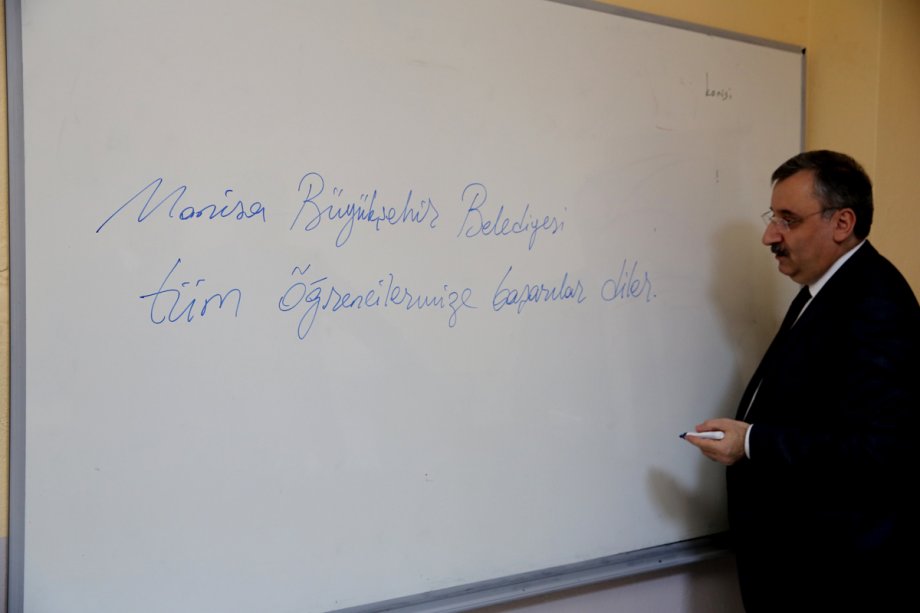 Manisa Büyükşehir Belediyesi
tüm öğrencilerimize başarılar diler.